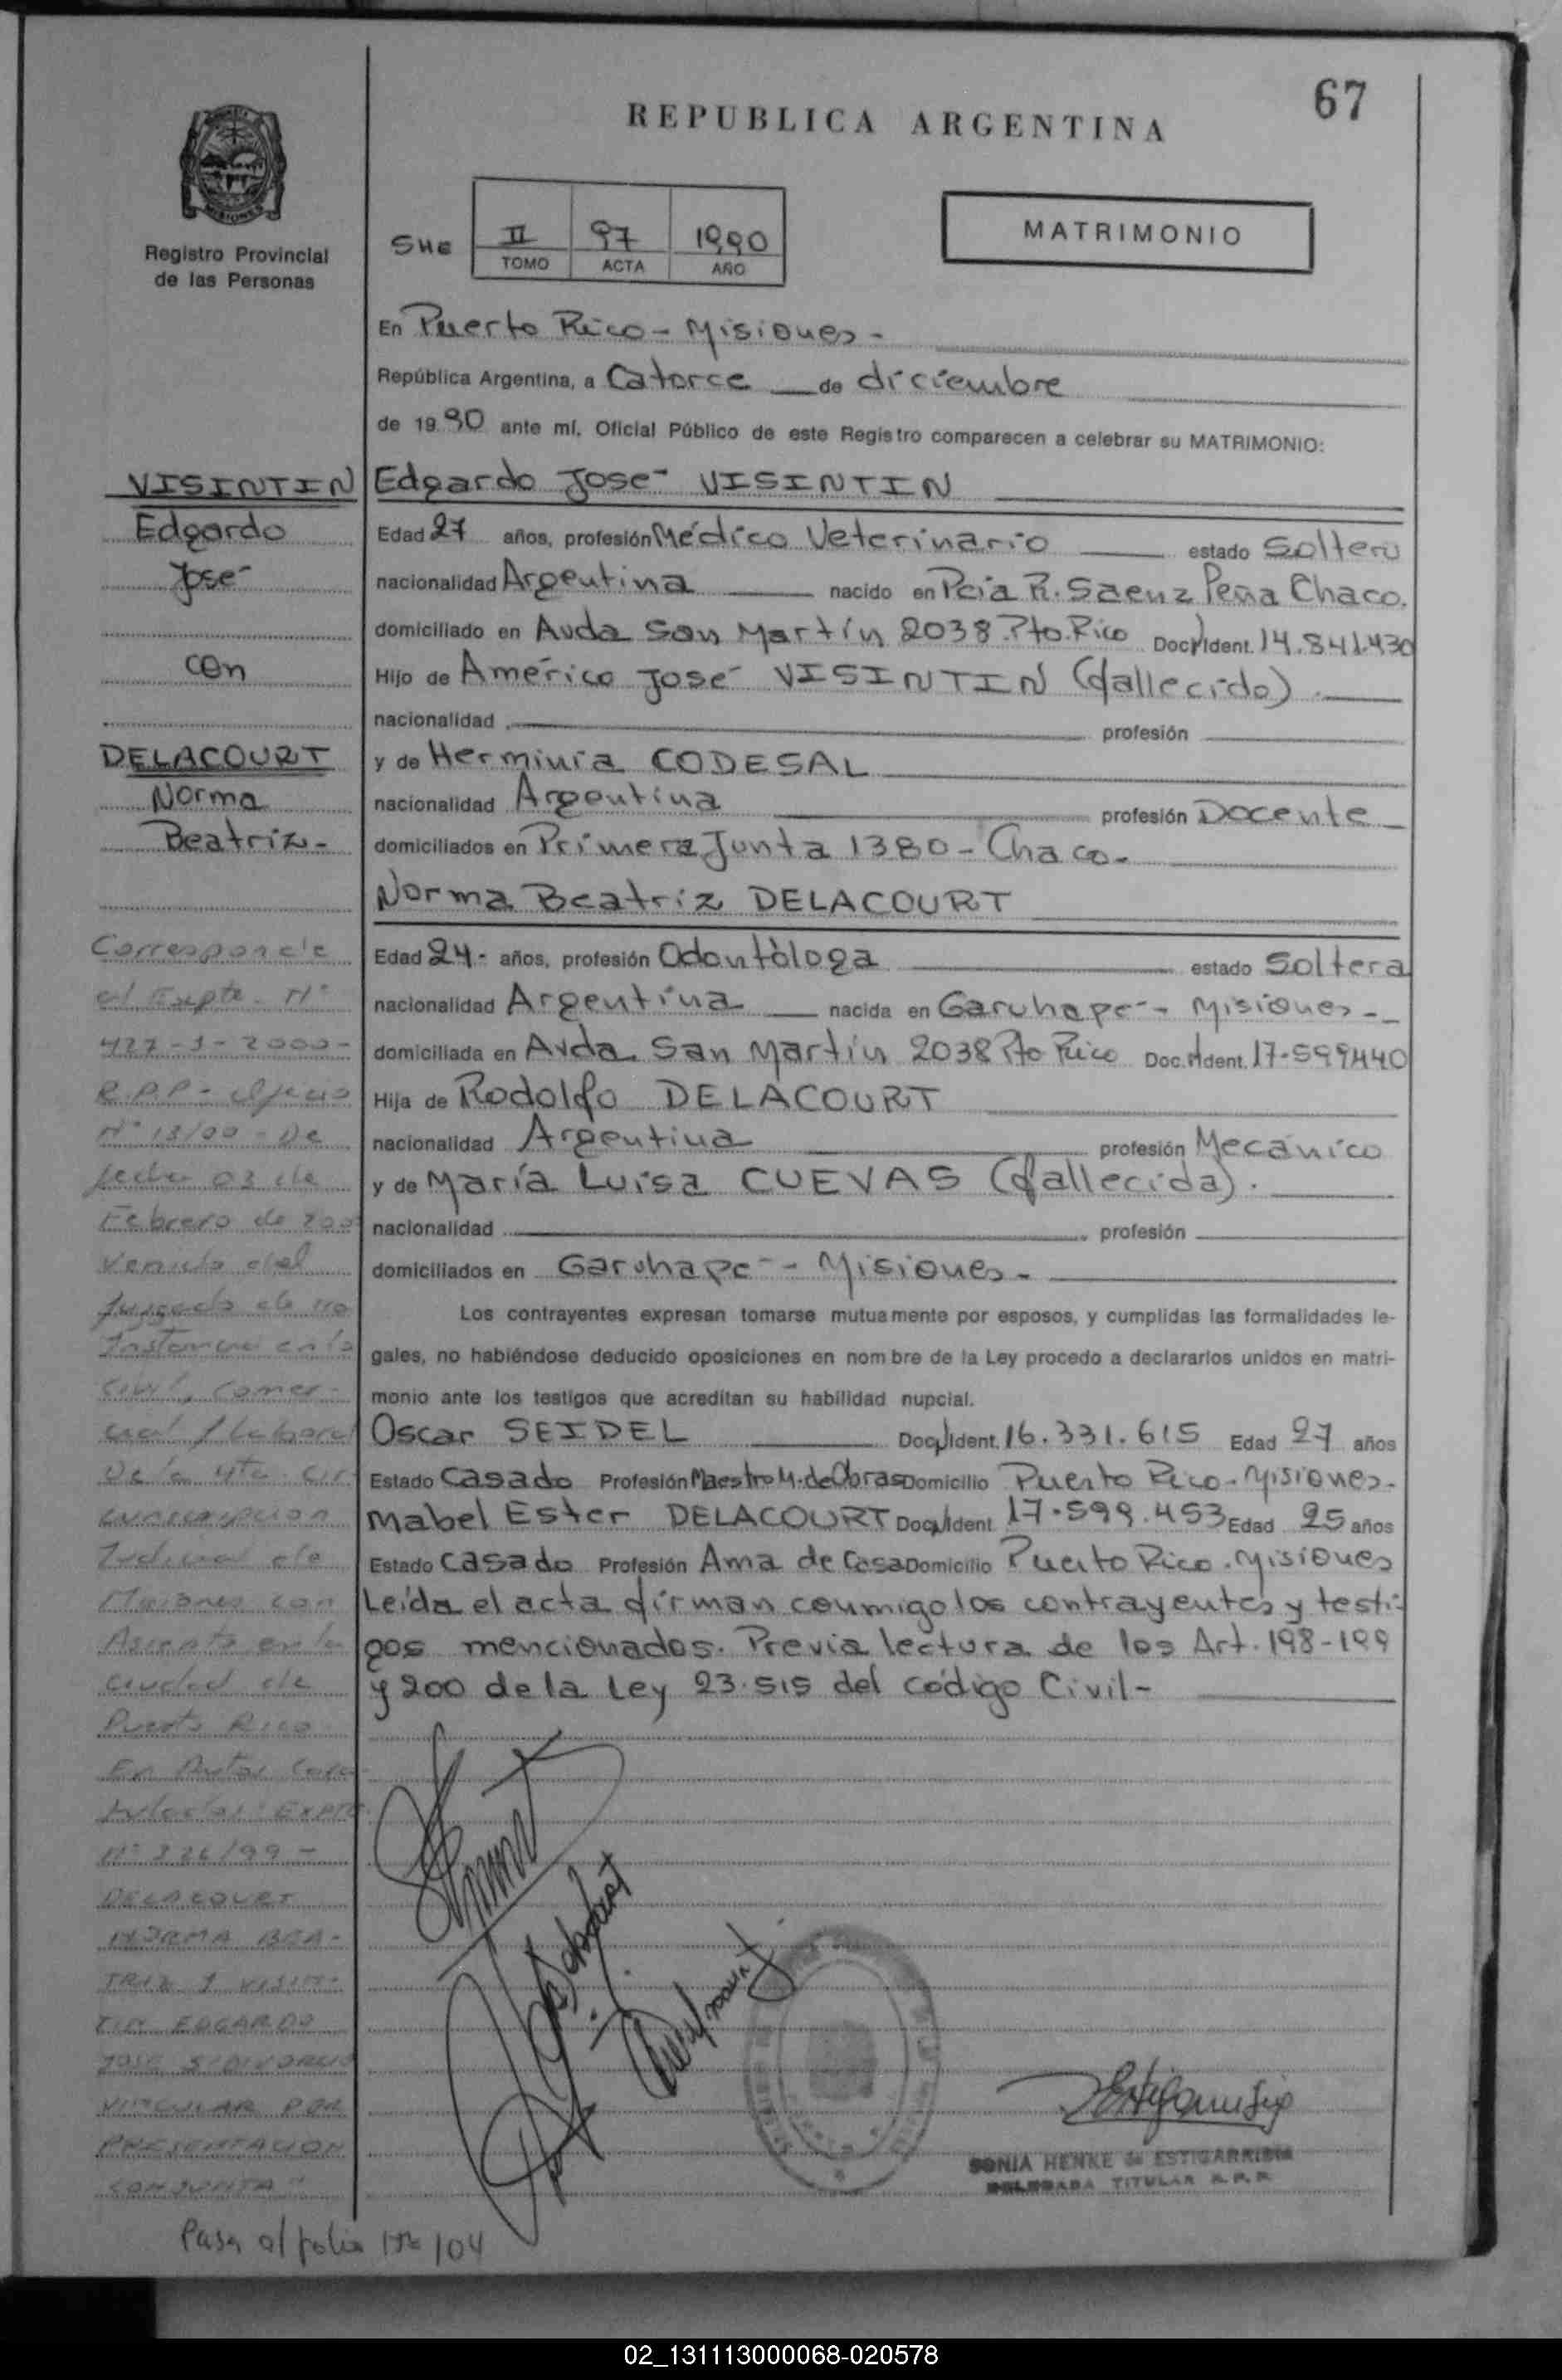 67
REPUBLICA ARGENTINA
MISIONES
Registro Provincial
de las Personas
SHE
II 97 1990
TOMO ACTA AÑO
MATRIMONIO
En Puerto Rico - Misiones -
República Argentina, a Catorce de diciembre
de 1990 ante mí, Oficial Público de este Registro comparecen a celebrar su MATRIMONIO:
VISINTIN
Edgardo
José
con
DELACOURT
Norma
Beatriz -
Edgardo José VISINTIN
Edad 27 años, profesión Médico Veterinario estado Soltero
nacionalidad Argentina nacido en Pcia R. Saenz Peña Chaco.
domiciliado en Avda San Martín 2038 Pto. Rico Doc. Ident. 14.841.430
Hijo de Américo José VISINTIN (fallecido).
nacionalidad profesión
y de Herminia CODESAL
nacionalidad Argentina profesión Docente
domiciliados en Primera Junta 1380 - Chaco -
Norma Beatriz DELACOURT
Edad 24 - años, profesión Odontóloga estado Soltera
nacionalidad Argentina nacida en Garuhapé - Misiones -
domiciliada en Avda. San Martín 2038 Pto Rico Doc. Ident. 17.599440
Hija de Rodolfo DELACOURT
nacionalidad Argentina profesión Mecánico
y de María Luisa CUEVAS (fallecida).
nacionalidad profesión
domiciliados en Garuhapé - Misiones -
Los contrayentes expresan tomarse mutuamente por esposos, y cumplidas las formalidades le-
gales, no habiéndose deducido oposiciones en nombre de la Ley procedo a declararlos unidos en matri-
monio ante los testigos que acreditan su habilidad nupcial.
Oscar SEIDEL Doc. Ident. 16.331.615 Edad 27 años
Estado Casado Profesión Maestro M. de Obras Domicilio Puerto Rico - Misiones -
Mabel Ester DELACOURT Doc. Ident 17.599.453 Edad 25 años
Estado Casado Profesión Ama de Casa Domicilio Puerto Rico - Misiones
Leída el acta firman conmigo los contrayentes y testi-
gos mencionados. Previa lectura de los Art. 198-199
y 200 de la Ley 23.515 del código Civil -
Corresponde
al Expte. Nº
427-J-2000-
R.P.P - Oficio
Nº 13/00 - De
fecha 03 de
Febrero de 200
venido del
Juzgado de 1ra
Instancia en lo
Civil, Comer-
cial y Laboral
De la 4ta. Cir-
cunscripcion
Judicial de
Misiones con
Asiento en la
ciudad de
Puerto Rico
En Autos Cara-
tulados: EXPTE
Nº 226/99 -
DELACOURT
NORMA BEA-
TRIZ Y VISIN-
TIN EDGARDO
JOSE S/DIVORCIO
VINCULAR POR
PRESENTACION
CONJUNTA"
Pasa al folio Nº 104
SONIA HENKE de ESTIGARRIBIA
DELEGADA TITULAR R.P.P.
02_131113000068-020578